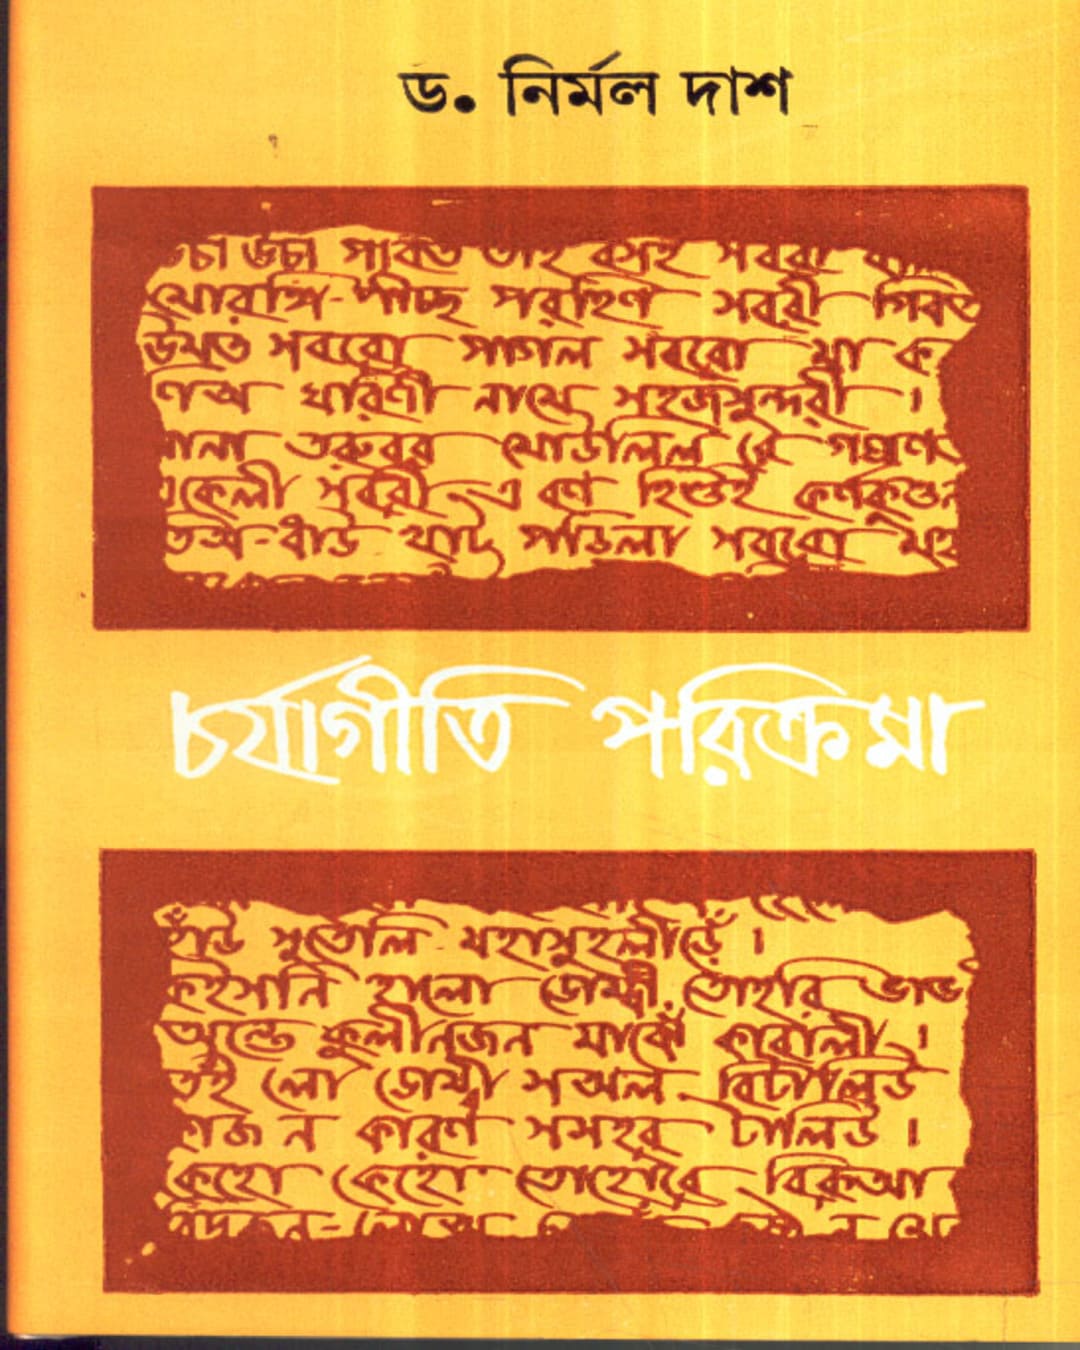 ড. নির্মল দাশ
উচা উচা পাবত তাঁহি বসই সবরী
মোরঙ্গি-পীচ্ছ পরহিণ সবরী গিবত
উমত সবরো পাগল সবরো মা ক
ণিঅ ঘরিণী নামে সহজসুন্দরী ।
নানা তরুবর মোউলিল রে গঅণ
একেলী সবরী এ বণ হিণ্ডই কর্ণকুণ্ডল
তিঅ-ধাউ খাট পড়িলা সবরো মহা
চর্যাগীতি পরিক্রমা
হাঁউ সুতেলি মহাসুহলীড়েঁ ।
কইসনি হালো ডোম্বী তোহরি ভাভ
অন্তে কুলীনজন মাঝেঁ কাবালী ।
তঁই লো ডোম্বী সঅল বিটালিউ
কাজ ন কারণ সসহর টালিউ ।
কেহো কেহো তোহোরে বিরুআ